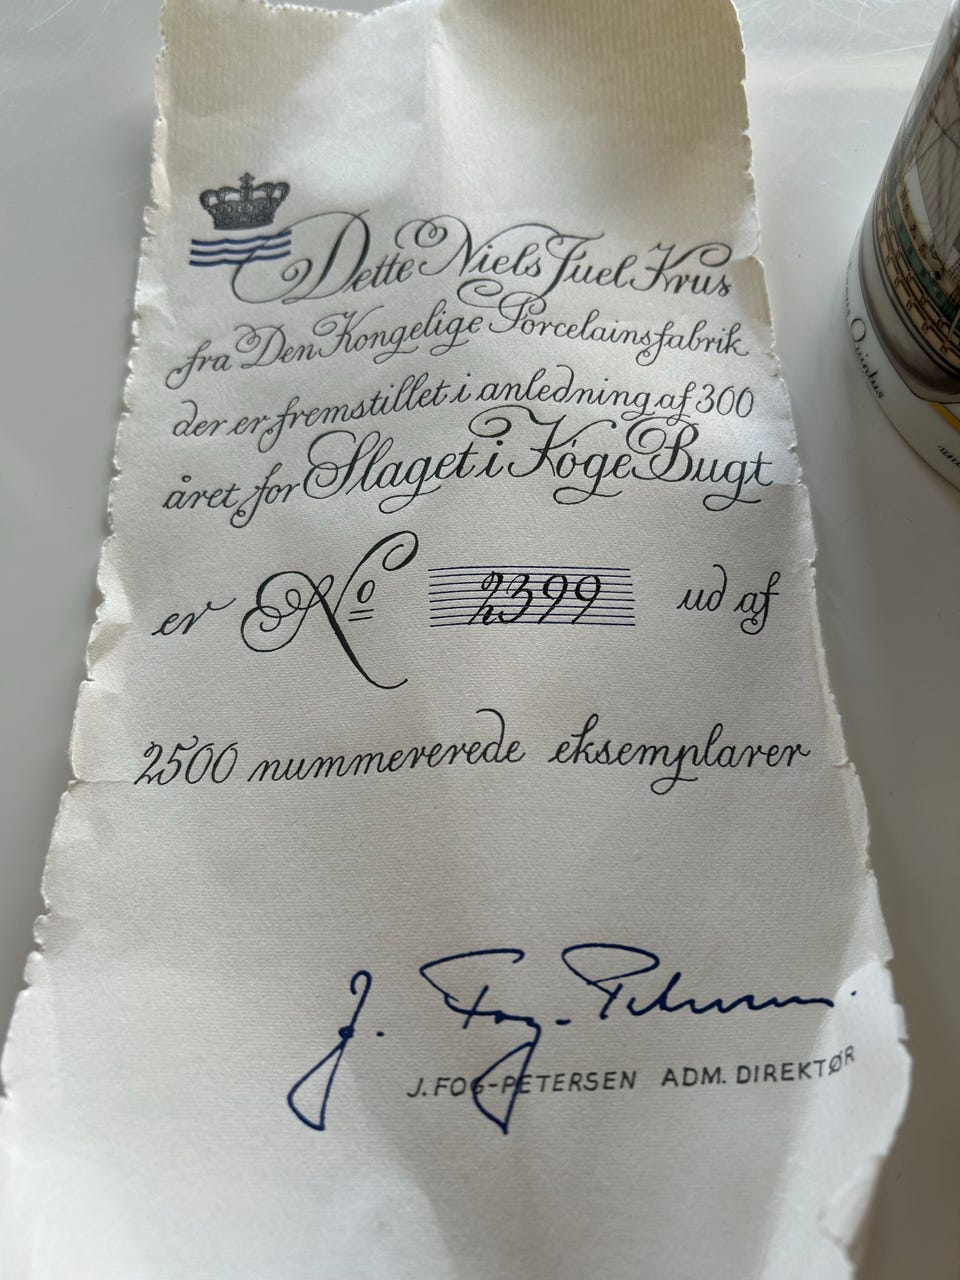 Dette Niels Juel Krus
fra Den Kongelige Porcelainsfabrik
der er fremstillet i anledning af 300
året for Slaget i Køge Bugt
er No 2399 ud af
2500 nummererede eksemplarer
J. Fog-Petersen.
J. FOG-PETERSEN ADM. DIREKTØR
Quintus